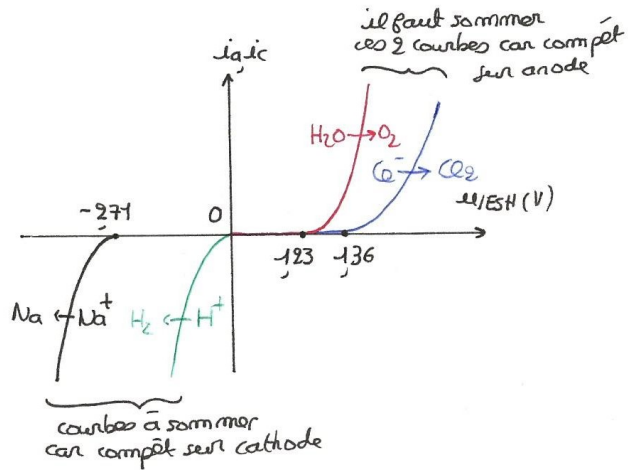 il faut sommer
ces 2 courbes car compét
sur anode
ia,ic
H2O→O2
Cl⁻→Cl2
-2,71
0
u/ESH (V)
1,23
1,36
Na←Na⁺
H2←H⁺
courbes à sommer
car compét sur cathode